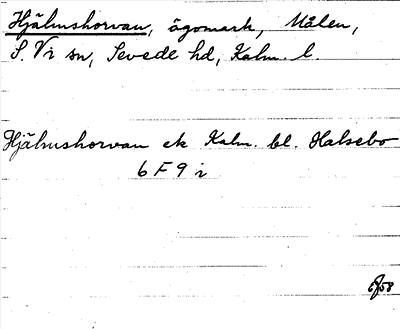 Hjälmshorvan, ägomark, Målen,
S. Vi sn, Sevede hd, Kalm. l.
Hjälmshorvan ek Kalm. bl. Halsebo
6 F 9 i